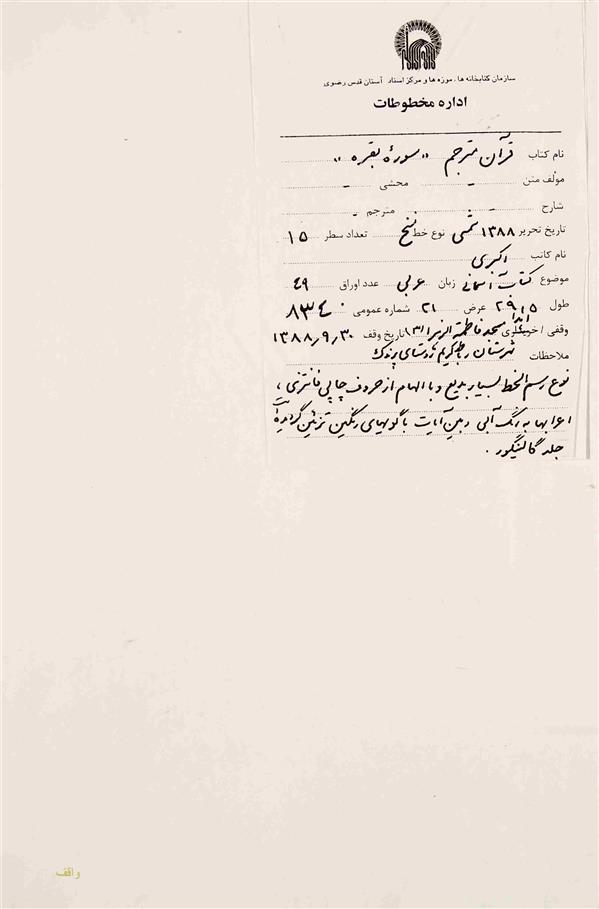 سازمان کتابخانه ها، موزه ها و مرکز اسناد آستان قدس رضوی
اداره مخطوطات
نام کتاب قرآن مترجم "سورهٔ بقره"
مؤلف متن - محشی -
شارح - مترجم -
تاریخ تحریر ۱۳۸۸ شمسی نوع خط نسخ تعداد سطر ۱۵
نام کاتب اکبری
موضوع کتاب آسمانی زبان عربی عدد اوراق ۴۹
طول ۲۹٫۵ عرض ۲۱ شماره عمومی ۸۳۴۰
وقفی / اهدا مسجد فاطمة الزهرا (۳۱) تاریخ وقف ۱۳۸۸٫۹٫۳۰
ملاحظات شهرستان رباط کریم روستای پرندک
نوع رسم الخط بسیار بدیع و با الهام از حروف چاپی فانتزی،
اعرابها به رنگ آبی و بین آیات با گویهای رنگین تزئین گردیده است
جلد گالینگور.
واقف